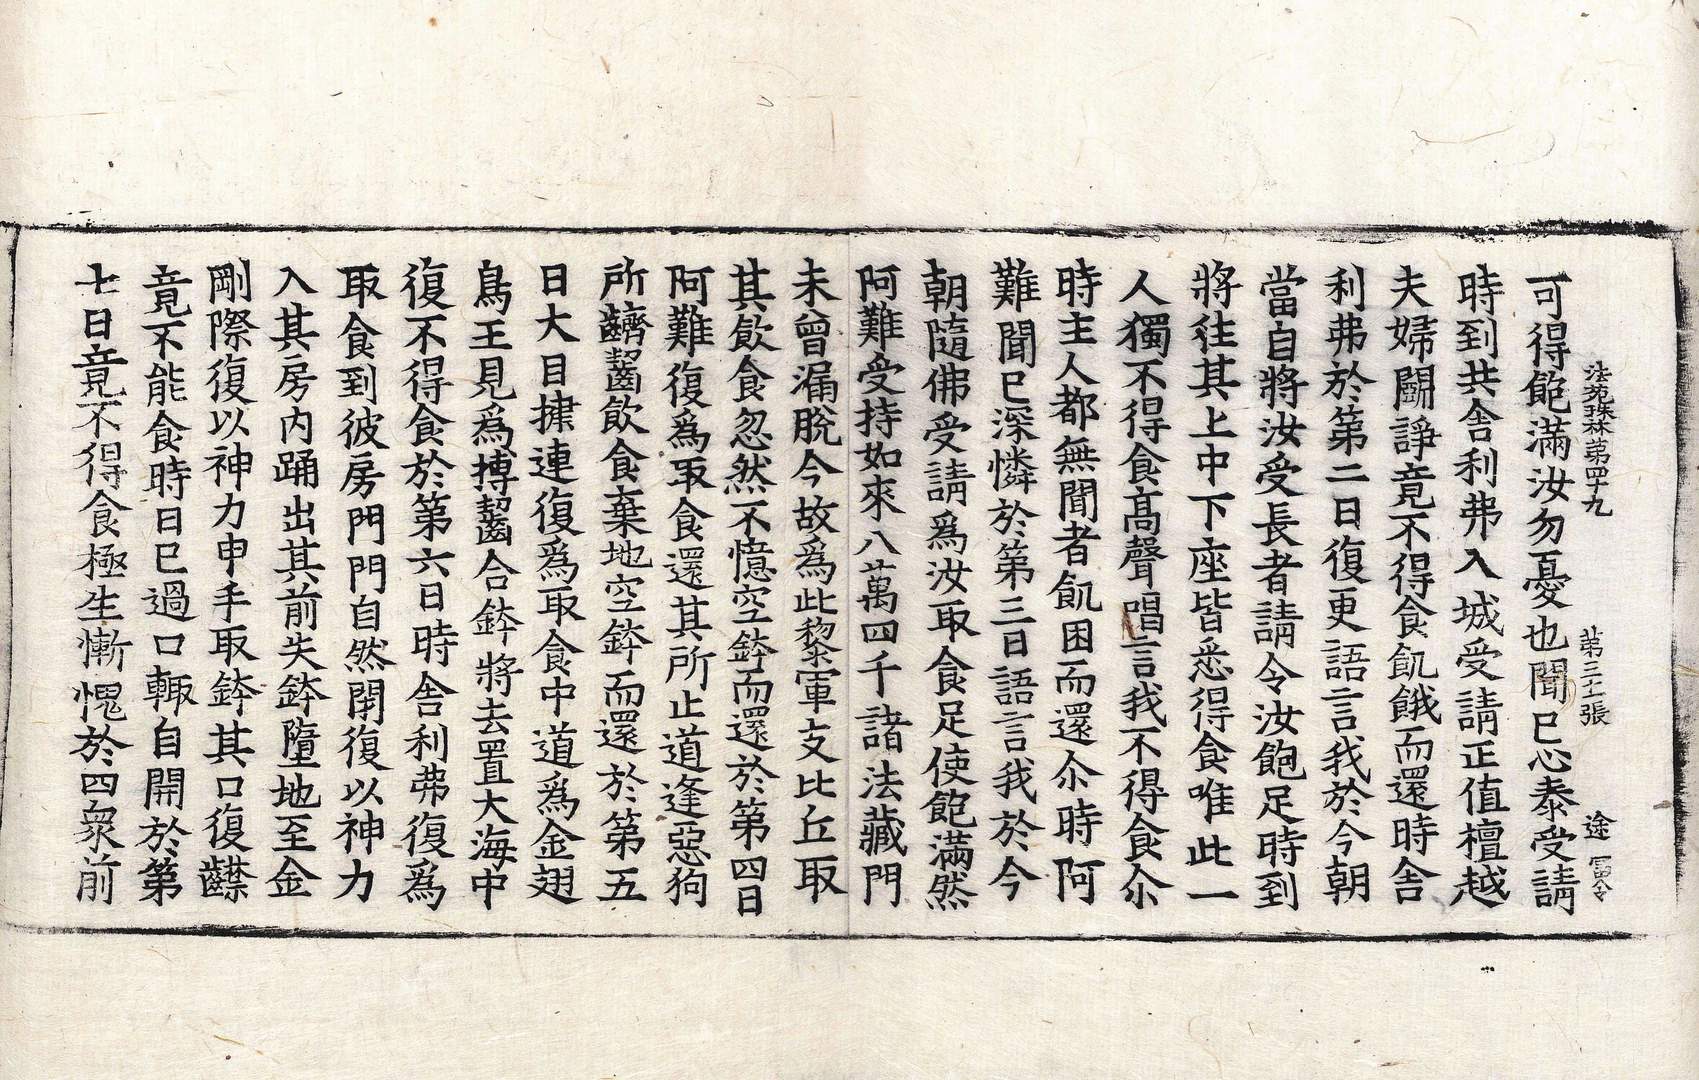 法苑珠林第四十九 第三十張 途 富令
可得飽滿汝勿憂也聞已心泰受請
時到共舍利弗入城受請正值檀越
夫婦鬪諍竟不得食飢餓而還時舍
利弗於第二日復更語言我於今朝
當自將汝受長者請令汝飽足時到
將往其上中下座皆悉得食唯此一
人獨不得食高聲唱言我不得食尒
時主人都無聞者飢困而還尒時阿
難聞已深憐於第三日語言我於今
朝隨佛受請爲汝取食足使飽滿然
阿難受持如來八萬四千諸法藏門
未曾漏脫今故爲此黎軍支比丘取
其飲食忽然不憶空鉢而還於第四日
阿難復爲取食還其所止道逢惡狗
所齩齧飲食棄地空鉢而還於第五
日大目揵連復爲取食中道爲金翅
鳥王見爲搏齧合鉢將去置大海中
復不得食於第六日時舍利弗復爲
取食到彼房門門自然閉復以神力
入其房内踊出其前失鉢墮地至金
剛際復以神力申手取鉢其口復噤
竟不能食時日已過口輙自開於第
七日竟不得食極生慚愧於四衆前